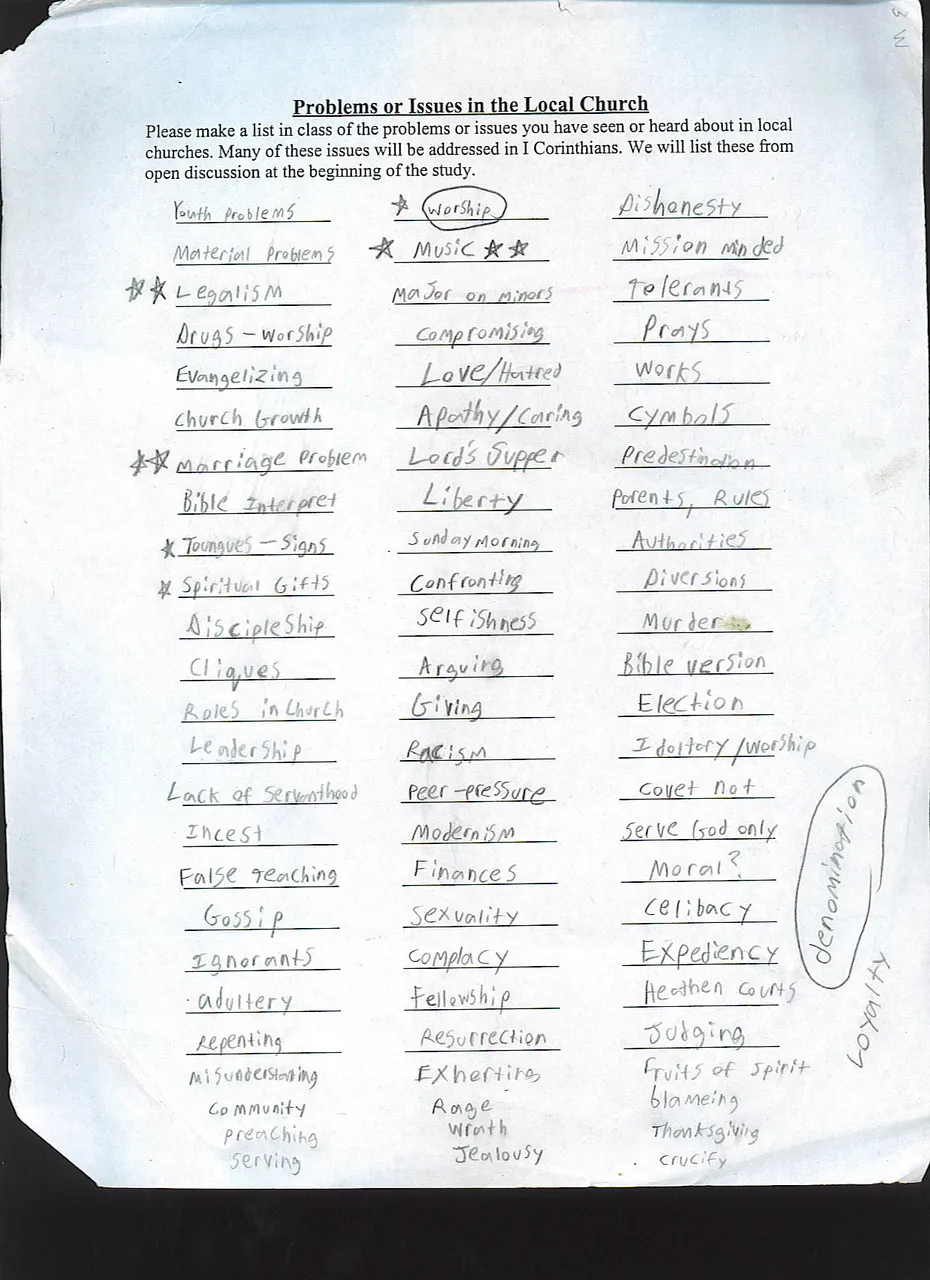 Problems or Issues in the Local Church
Please make a list in class of the problems or issues you have seen or heard about in local
churches. Many of these issues will be addressed in I Corinthians. We will list these from
open discussion at the beginning of the study.
Youth Problems
Material Problems
☆☆ Legalism
Drugs - Worship
Evangelizing
Church Growth
☆☆ Marriage Problem
Bible Interpret
☆ Toungues - Signs
☆ Spiritual Gifts
Discipleship
Cliques
Roles in Church
Leadership
Lack of Servanthood
Incest
False Teaching
Gossip
Ignorants
adultery
repenting
misunderstanding
Community
preaching
serving
☆ Worship
☆ Music ☆☆
Major on minors
Compromising
Love/Hatred
Apathy/Caring
Lord's Supper
Liberty
Sunday Morning
Confronting
Selfishness
Arguing
Giving
Racism
Peer-pressure
Modernism
Finances
Sexuality
Complacy
Fellowship
Resurrection
Exherting
Rage
Wrath
Jealousy
Dishonesty
Mission minded
Tolerants
Prays
Works
Cymbals
Predestination
Parents, Rules
Authorities
Diversions
Murder
Bible version
Election
Idoltory/Worship
Covet not
Serve God only
Moral?
Celibacy
Expediency
Heathen Courts
Judging
Fruits of Spirit
blameing
Thanksgiving
crucify
denomination
Loyalty